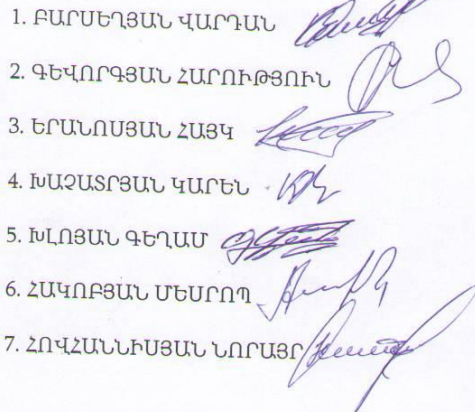 1. ԲԱՐՍԵՂՅԱՆ ՎԱՐԴԱՆ
2. ԳԵՎՈՐԳՅԱՆ ՀԱՐՈՒԹՅՈՒՆ
3. ԵՐԱՆՈՍՅԱՆ ՀԱՅԿ
4. ԽԱՉԱՏՐՅԱՆ ԿԱՐԵՆ
5. ԽԼՈՅԱՆ ԳԵՂԱՄ
6. ՀԱԿՈԲՅԱՆ ՄԵՍՐՈՊ
7. ՀՈՎՀԱՆՆԻՍՅԱՆ ՆՈՐԱՅՐ